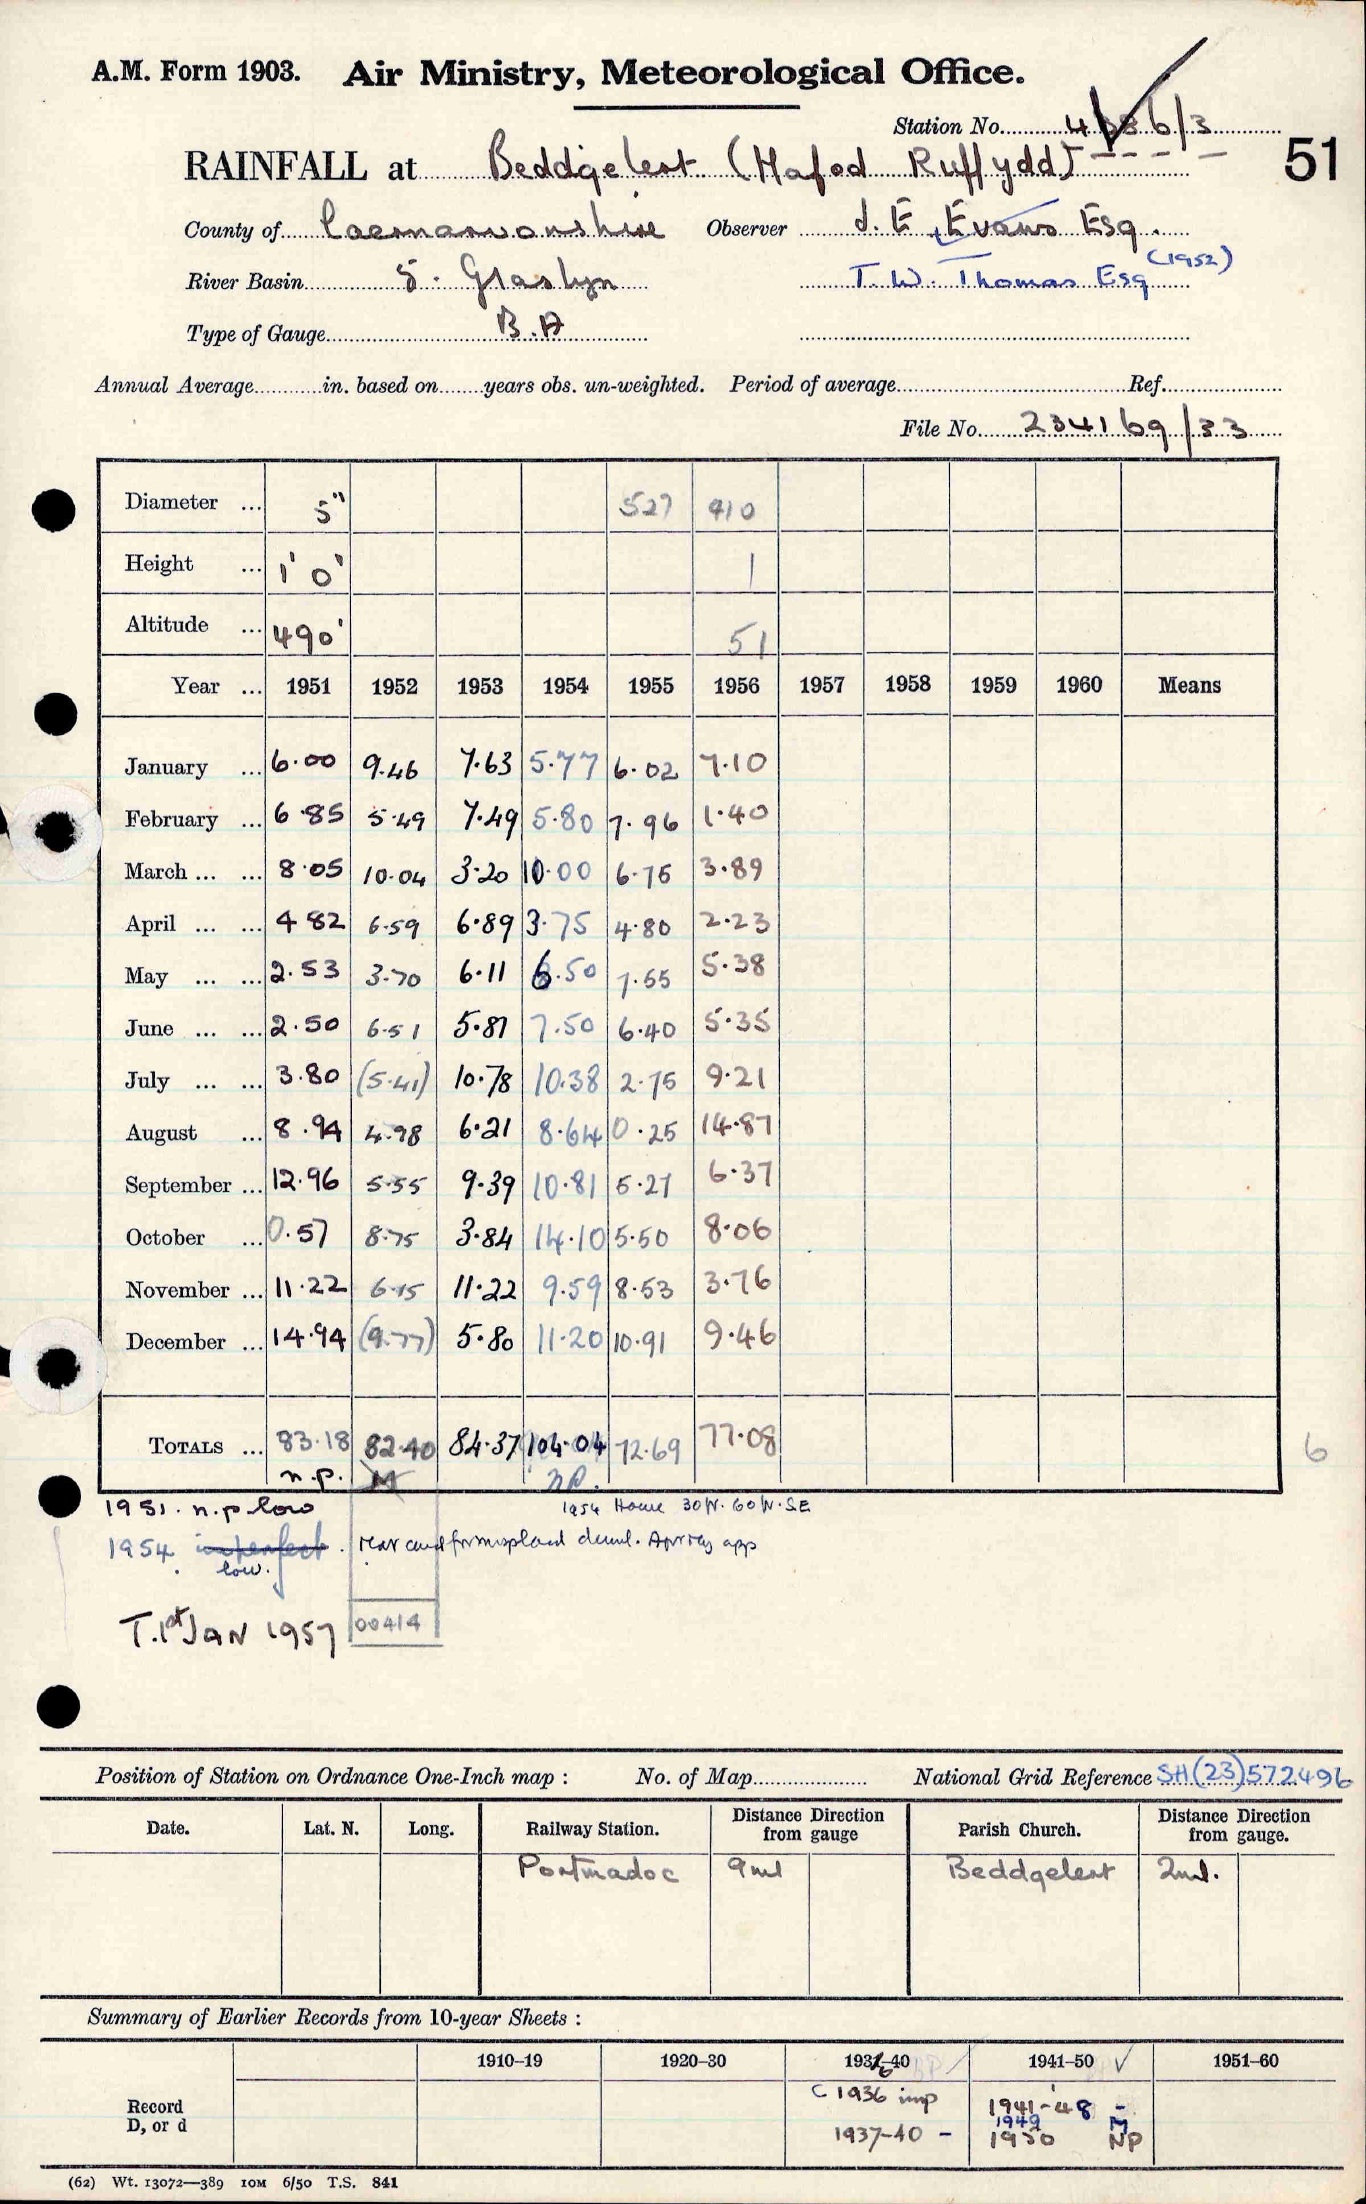 A.M. Form 1903. Air Ministry, Meteorological Office.
Station No. 4386/3
RAINFALL at Beddgelert (Hafod Ruffydd) 51
County of Caernarvonshire Observer J. E. Evans Esq.
River Basin 5. Glaslyn T. W. Thomas Esq (1952)
Type of Gauge B.A
Annual Average in. based on years obs. un-weighted. Period of average Ref.
File No. 234169/33
Diameter ... 5" 527 910
Height ... 1' 0" 1
Altitude ... 490' 51
Year ... 1951 1952 1953 1954 1955 1956 1957 1958 1959 1960 Means
January ... 6.00 9.46 7.63 5.77 6.02 7.10
February ... 6.85 5.49 7.49 5.80 7.96 1.40
March ... ... 8.05 10.04 3.20 10.00 6.75 3.89
April ... ... 4 82 6.59 6.89 3.75 4.80 2.23
May ... ... 2.53 3.70 6.11 6.50 7.55 5.38
June ... ... 2.50 6.51 5.81 7.50 6.40 5.35
July ... ... 3.80 (5.41) 10.78 10.38 2.75 9.21
August ... 8.94 4.98 6.21 8.64 0.25 14.87
September ... 12.96 5.55 9.39 10.81 5.27 6.37
October ... 0.57 8.75 3.84 14.10 5.50 8.06
November ... 11.22 6.15 11.22 9.59 8.53 3.76
December ... 14.94 (9.77) 5.80 11.20 10.91 9.46
TOTALS ... 83.18 82.40 84.37 104.04 72.69 77.08 6
n.p. M n.p.
1951. n.p low 1954 House 30N. 60N. SE
1954 imperfect. app
low.
T. 1st JAN 1957 00414
Position of Station on Ordnance One-Inch map : No. of Map National Grid Reference SH(23)572496
Date. Lat. N. Long. Railway Station. Distance Direction from gauge Parish Church. Distance Direction from gauge.
Portmadoc 9ml Beddgelert 2ml.
Summary of Earlier Records from 10-year Sheets :
1910–19 1920–30 1936–40 1941–50 1951–60
Record D, or d
C 1936 imp 1941-48 -
1949 M
1937-40 - 1950 NP
(62) Wt. 13072—389 10M 6/50 T.S. 841